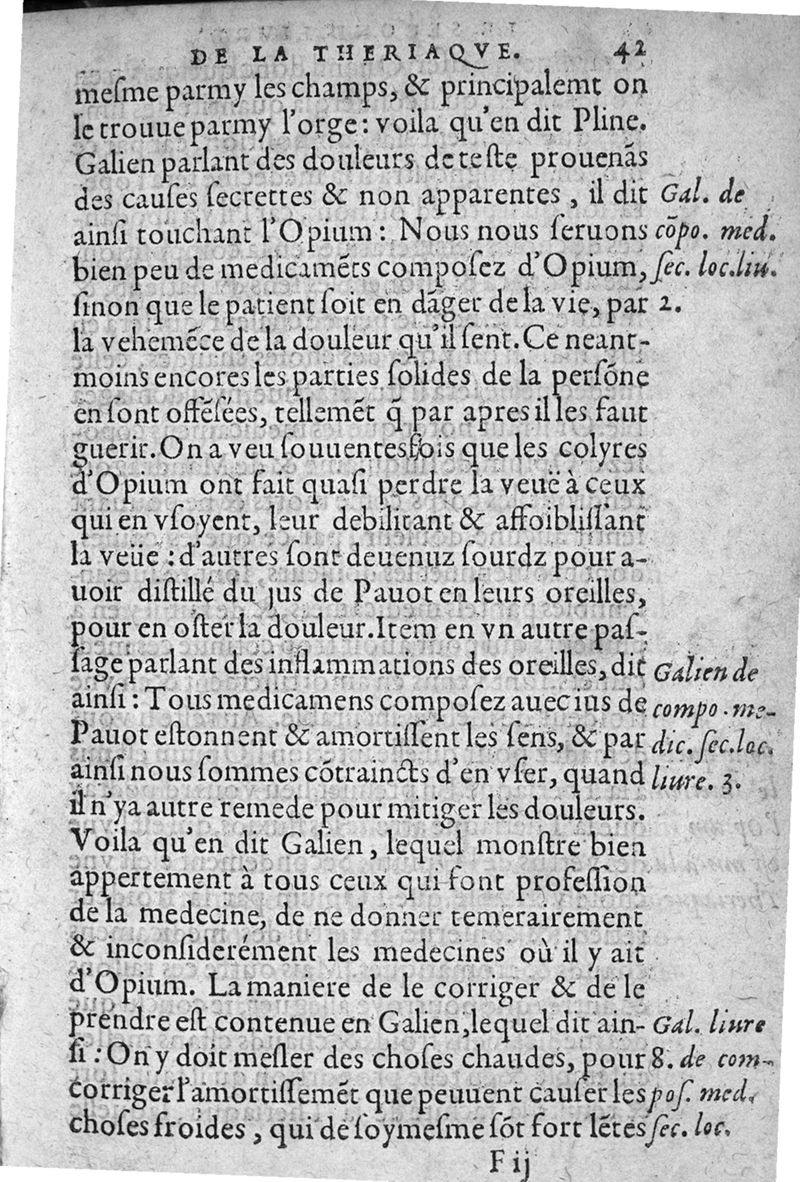 DE LA THERIAQVE. 42
meſme parmy les champs, & principalemt on
le trouue parmy l'orge: voila qu'en dit Pline.
Galien parlant des douleurs de teſte prouenãs
des cauſes ſecrettes & non apparentes, il dit
Gal. de
ainſi touchant l'Opium: Nous nous ſeruons
cõpo. med.
bien peu de medicamẽts compoſez d'Opium,
ſec. loc. liu.
ſinon que le patient ſoit en dãger de la vie, par
2.
la vehemẽce de la douleur qu'il ſent. Ce neant-
moins encores les parties ſolides de la perſõne
en ſont offẽſées, tellemẽt q̃ par apres il les faut
guerir. On a veu ſouuentesfois que les colyres
d'Opium ont fait quaſi perdre la veuë à ceux
qui en vſoyent, leur debilitant & affoibliſſant
la veüe: d'autres ſont deuenuz ſourdz pour a-
uoir diſtillé du jus de Pauot en leurs oreilles,
pour en oſter la douleur. Item en vn autre paſ-
ſage parlant des inflammations des oreilles, dit
Galien de
ainſi: Tous medicamens compoſez auec ius de
compo. me-
Pauot eſtonnent & amortiſſent les ſens, & par
dic. ſec. loc.
ainſi nous ſommes cõtraincts d'en vſer, quand
liure. 3.
il n'ya autre remede pour mitiger les douleurs.
Voila qu'en dit Galien, lequel monſtre bien
appertement à tous ceux qui font profeſſion
de la medecine, de ne donner temerairement
& inconſiderément les medecines où il y ait
d'Opium. La maniere de le corriger & de le
prendre eſt contenue en Galien, lequel dit ain-
Gal. liure
ſi: On y doit meſler des choſes chaudes, pour
8. de com-
corriger l'amortiſſemẽt que peuuent cauſer les
poſ. med.
choſes froides, qui de ſoymeſme ſõt fort lẽtes
ſec. loc.
F ij